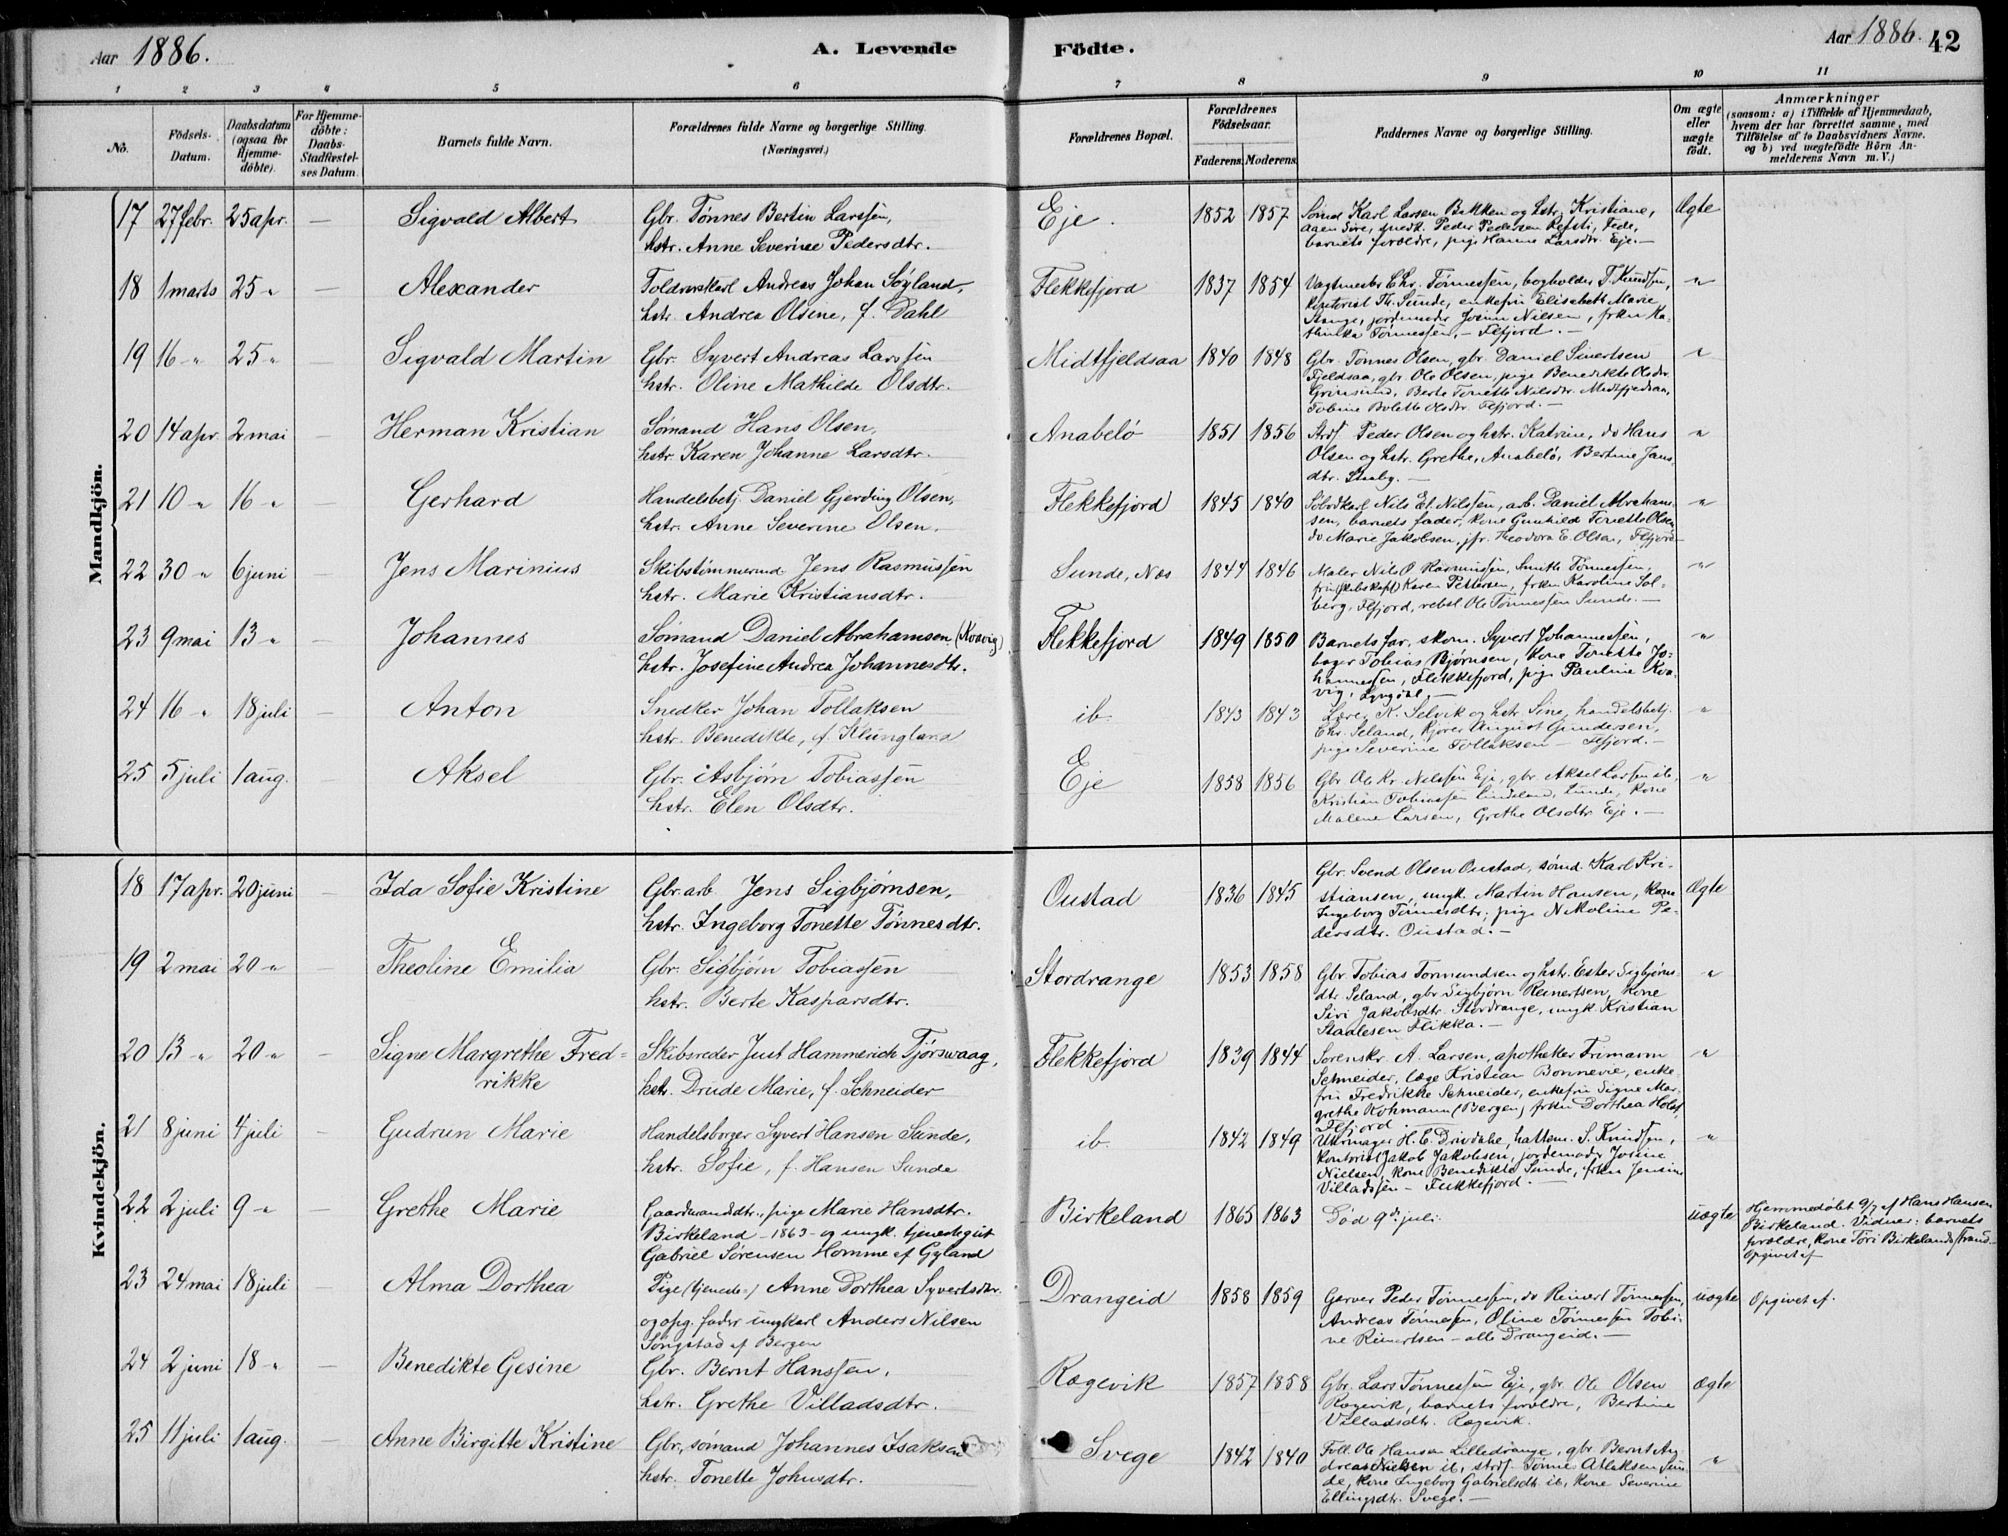 Aar 1886.
A. Levende Födte.
Aar 1886. 42
1 2 3 4 5 6 7 8 9 10 11
No.
Födsels-Datum.
Daabsdatum (ogsaa for Hjemmedöbte).
For Hjemmedöbte: Daabs-Stadfæstelses Datum.
Barnets fulde Navn.
Forældrenes fulde Navne og borgerlige Stilling. (Næringsvei.)
Forældrenes Bopæl.
Forældrenes Födselsaar.
Faderens. Moderens.
Faddernes Navne og borgerlige Stilling.
Om ægte eller uægte födt.
Anmærkninger
(saasom: a) i Tilfælde af Hjemmedaab,
hvem der har forrettet samme, med
Tilföielse af to Daabsvidners Navne.
og b) ved uægtefödte Börn An-
melderens Navn m. V.)
Mandkjön.
17 27 febr. 25 apr. — Sigvald Albert
Gbr. Tønnes Bertin Larssen,
hstr. Anne Severine Pedersdtr.
Eje. 1852 1857
Sømd Karl Larsen Bakken og hstr. Kristiane,
Aagen Søre, snedk. Peder Pedersen Refsti, Fede,
barnets forældre, pige Hanne Larsdtr. Eje. —
Ægte
18 1 marts 25 " — Alexander
Toldværkarl Andreas Johan Søyland,
hstr. Andrea Olsine, f. Dahl
Flekkefjord 1837 1854
Vagtmester Chr. Tønnessen, bogholder T. Knudsen,
kontorist Th. Sunde, enkefru Elisabeth Marie
Stange, jordemoder Josine Nilsen, frkn Ka-
thinka Tønnessen, — Flfjord. —
"
19 16 " 25 " — Sigvald Martin
Gbr. Syvert Andreas Larssen
hstr. Oline Mathilde Olsdtr.
Midtfjeldsaa 1840 1848
Gbr. Tønnes Olsen, gbr. Daniel Sivertsen
Fjeldsaa, gbr. Ole Olsen, pige Benedikte Olsdtr.
Grimsund, Berte Tonette Nilsdtr. Midtfjeldsaa,
Tobine Bolette Olsdtr. Flfjord. —
"
20 14 apr. 2 mai — Herman Kristian
Sømand Hans Olsen,
hstr. Karen Johanne Larsdtr.
Anabelø 1851 1856
Strds. Peder Olsen og hstr. Katrine, do Hans
Olsen og hstr. Grethe, Anabelø, Bertine Jans-
dtr. —
"
21 10 " 16 " — Gerhard
Handelsbetj. Daniel Gjerding Olsen,
hstr. Anne Severine Olsen.
Flekkefjord 1845 1840
Nils El. Nilssen, arb. Daniel Abraham-
sen, barnets fader, kone Gunhild Tonette Olsen,
do Marie Jakobsen, jfr. Theodora E. Olsen, Flfjord —
"
22 30 " 6 juni — Jens Marinius
Skibstømmermd. Jens Rasmussen
hstr. Marie Kristiansdtr.
Sunde, Næs 1844 1846
Maler Nils P. Rasmussen, Tønnessen,
fru (skibskapt.) Karen Pettersen, frkn Karoline Sol-
berg, Flfjord, rebsl. Ole Tønnessen Sunde. —
"
23 9 mai 13 " — Johannes
Sømand Daniel Abrahamsen (Kvavig)
hstr. Josefine Andrea Johannesdtr.
Flekkefjord 1849 1850
Barnets far, skom. Syvert Johannessen,
bager Tobias Bjørnsen, kone Tonette Jo-
hannessen, Flekkefjord, pige Pauline Kva-
vig, Lyngdal. —
"
24 16 " 18 juli — Anton
Snedker Johan Tollaksen
hstr. Benedikte, f. Klungland
ib. 1843 1843
Lærer N. Selvik og hstr. Sine, handelsbetj.
Chr. Seland, kjører August Gundersen,
pige Severine Tollaksen — Flfjord. —
"
25 5 juli 1 aug. Aksel
Gbr. Asbjørn Tobiassen
hstr. Elen Olsdtr.
Eje 1858 1856
Gbr. Ole Kr. Nilssen Eje, gbr. Aksel Larssen ib.
Kristian Tobiassen Lindland, Lunde, kone
Malene Larsen, Grethe Olsdtr Eje. —
"
Kvindekjön.
18 17 apr. 20 juni — Ida Sofie Kristine
Gbr. arb. Jens Sigbjørnsen,
hstr. Ingeborg Tonette Tønnesdtr.
Oustad 1836 1845
Gbr. Svend Olsen Oustad, sømd. Karl Kri-
stiansen, ungk. Martin Hansen, kone
Ingeborg Tønnesdtr., pige Nikoline Pe-
dersdtr. Oustad. —
Ægte
19 2 mai 20 " — Theoline Emilia
Gbr. Sigbjørn Tobiassen
hstr. Berte Kasparsdtr.
Stordrange 1853 1858
Gbr. Tobias Tormundsen og hstr. Ester Sigbjørns-
dtr. Seland, gbr. Sigbjørn Reinertsen, kone
Siri Jakobsdtr. Stordrange, ungk. Kristian
Staalesen Flikka. —
"
20 13 " 20 " — Signe Margrethe Fred-
rikke
Skibsreder Just Hammerich Tjørswaag,
hstr. Drude Marie, f. Schneider
Flekkefjord 1839 1844
Sorenskr. A. Larsen, apotheker Trimann
Schneider, læge Kristian Bonnevie, enke-
fru Fredrikke Schneider, enkefru Signe Mar-
grethe Kohmann (Bergen) frkn Dorthea Holst,
Flfjord.
"
21 8 juni 4 juli — Gudrun Marie
Handelsborger Syvert Hansen Sunde,
hstr. Sofie, f. Hansen Sunde
ib. 1842 1849
Uhrmager H. C. Drivdahl, hattem. S. Knudsen,
kontorist Jakob Jakobsen, jordemoder Josine
Nielsen, kone Benedikte Sunde, frkn Jensine
Villadssen — Flekkefjord. —
"
22 2 juli 9 " — Grethe Marie
Gaardmandsdtr., pige Marie Hansdtr.
Birkeland — 1863 — og ungk. tjenestegut
Gabriel Sørensen Homme af Gyland
Birkeland 1865 1863
Død 9de juli.
uægte
Hjemmedøbt 9/7 af Hans Hansen
Birkeland. Vidner: barnets
forældre, kone Tøri Birkeland
Opgivet af
23 24 mai 18 juli — Alma Dorthea
Pige (tjenede) Anne Dorthea Syvertsdtr.
og opg. fader ungkarl Anders Nilsen
Songstad af Bergen
Drangeid 1858 1859
Garver Peder Tønnessen, do Reinert Tønnessen,
Andreas Tønnessen, Oline Tønnessen Tobi-
ne Reinertsen — alle Drangeid. —
uægte
Opgivet af.
24 2 juni 18 " — Benedikte Gesine
Gbr. Bernt Hanssen,
hstr. Grethe Villadsdtr.
Rægevik 1857 1858
Gbr. Lars Tønnessen Eje, gbr. Ole Olsen
Rægevik, barnets forældre, Bertine
Villadsdtr. Rægevik.
ægte
25 11 juli 1 aug. — Anne Birgitte Kristine
Gbr., sømand Johannes Isaksen
hstr. Tonette Johnsdtr.
Svege 1842 1840
Ole Hansen Lilledrange, gbr. Bernt An-
dreas Nielsen ib., strds. Tønnes Atlaksen Sun-
de, kone Ingeborg Gabrielsdtr. ib., kone Severine
Ellingsdtr. Svege. —
"